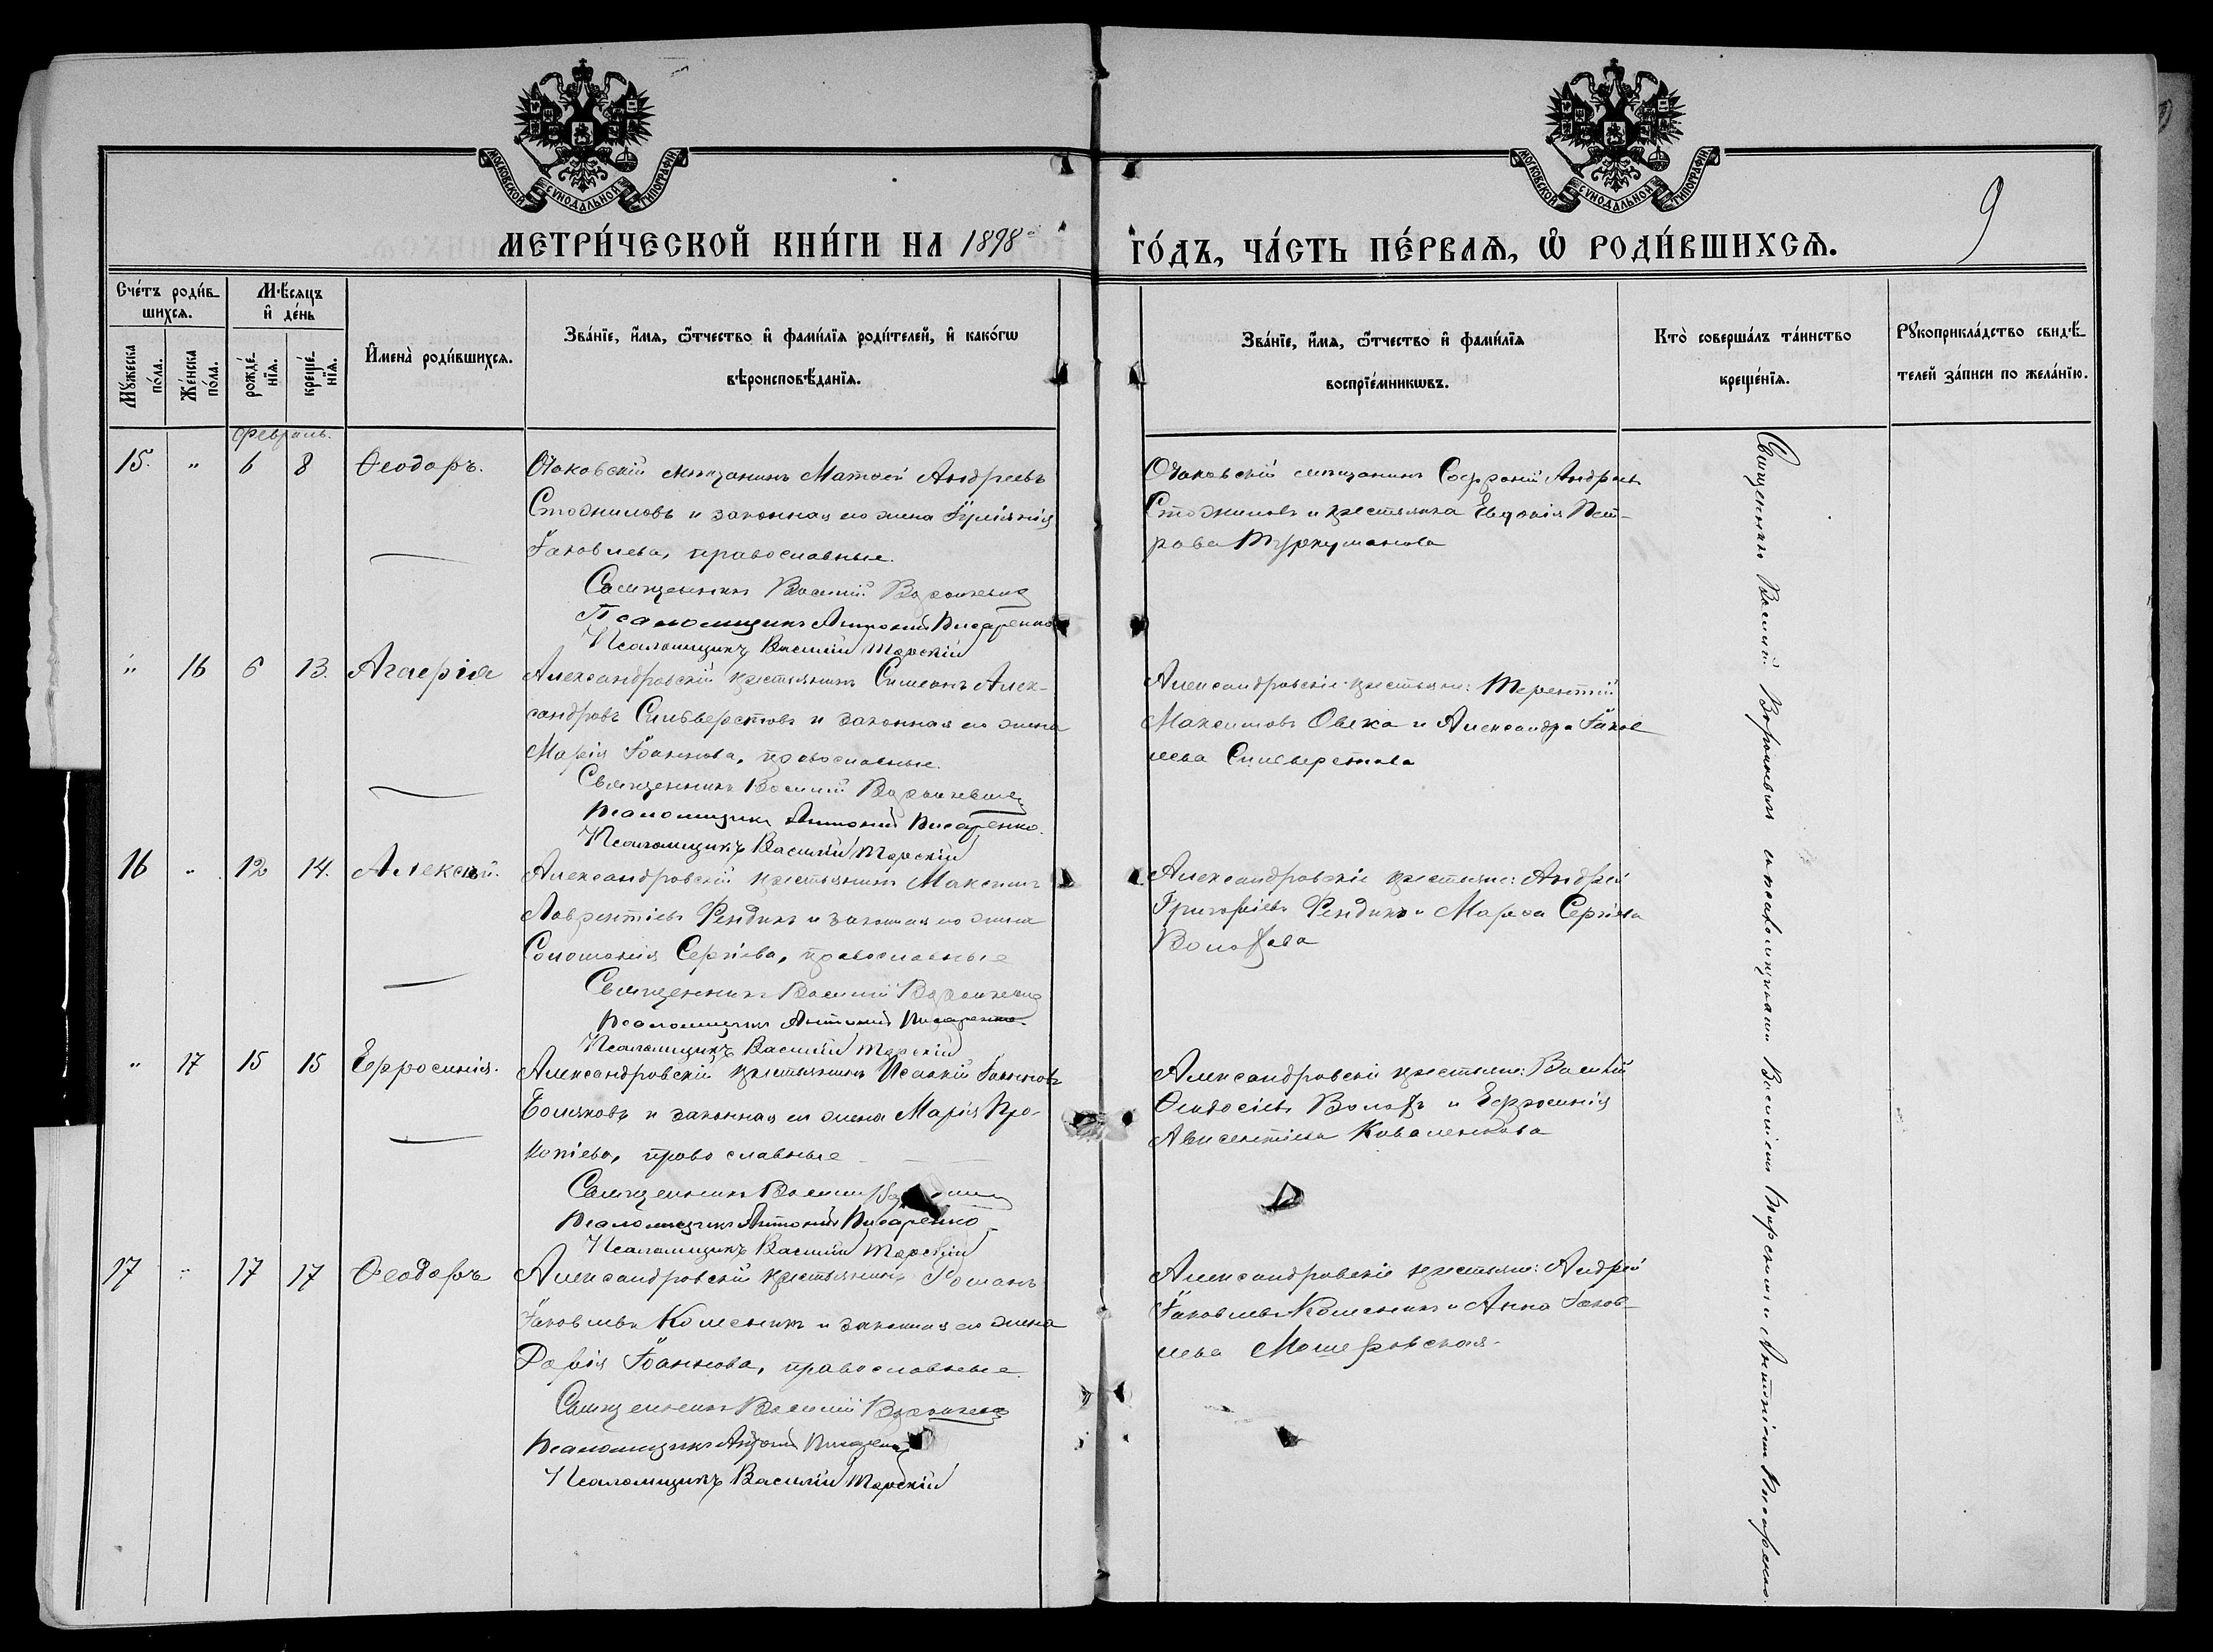 МОСКОВСКОЙ СУНОДАЛЬНОЙ ТИПОГРАФІИ.
МОСКОВСКОЙ СУНОДАЛЬНОЙ ТИПОГРАФІИ.
9
МЕТРИ́ЧЕСКОЙ КНИ́ГИ НА 1898
ГО́ДЪ, ЧА́СТЬ ПЕ́РВАѦ, Ѡ҆ РОДИ́ВШИХСѦ.
Сче́тъ роди́в-
шихсѧ.
Мꙋ́жеска по́ла.
Же́нска по́ла.
Мѣ́сѧцъ
и҆ де́нь
рожде́нїѧ.
креще́нїѧ.
И҆мена̀ роди́вшихсѧ.
Зва́нїе, и҆́мѧ, ѻ҆́тчество и҆ фами́лїѧ роди́телей, и҆ како́гѡ
вѣроисповѣ́данїѧ.
Зва́нїе, и҆́мѧ, ѻ҆́тчество и҆ фами́лїѧ
воспрїе́мникѡвъ.
Кто̀ соверша́лъ та́инство
креще́нїѧ.
Рꙋкоприкла́дство свидѣ́-
телей за́писи по жела́нїю.
Февраль.
15. " 6 8 Ѳеодоръ. Очаковскій мѣщанинъ Матѳей Андреевъ
Стожиловъ и законная его жена Іуліанія
Іаковлева, православные.
Священникъ Василій Воронкевич
Псаломщикъ Антоній Писаренко
Псаломщикъ Василій Тарскій
Очаковскій мѣщанинъ Софроній Андреевъ
Стожиловъ и крестьянка Евдокія Пет-
рова Туркуманова
" 16 6 13. Агаѳрія Александровскій крестьянинъ Симеонъ Алек-
сандровъ Сильверстовъ и законная его жена
Марія Іоаннова, православные.
Священникъ Василій Воронкевич
Псаломщикъ Антоній Писаренко.
Псаломщикъ Василій Тарскій
Александровскіе крестьяне: Терентій
Максимовъ Овека и Александра Іаков
лева Сильверстова
16 " 12 14. Алексѣй. Александровскій крестьянинъ Максимъ
Лаврентіевъ Рендикъ и законная его жена
Соломонія Сергіева, православные
Священникъ Василій Воронкевич
Псаломщикъ Антоній Писаренко.
Псаломщикъ Василій Тарскій
Александровскіе крестьяне: Андрей
Григоріевъ Рендикъ и Марѳа Сергіева
" 17 15 15 Ефросинія. Александровскій крестьянинъ Исаакій Іоанновъ
Боляковъ и законная его жена Марія Про-
копіева, православные
Священникъ Василій
Псаломщикъ Антоній Писаренко
Псаломщикъ Василій Тарскій
Александровскіе крестьяне: Василій
Ѳеодосіевъ и Ефросинія
Авксентіева Коваленкова
17 " 17 17 Ѳеодоръ Александровскій крестьянинъ Романъ
Іаковлевъ Колесникъ и законная его жена
Дарія Іоаннова, православные.
Священникъ Василій Воронкевич
Псаломщикъ Антоній
Псаломщикъ Василій Тарскій
Александровскіе крестьяне: Андрей
Іаковлевъ Колесникъ и Анна Іаков-
лева
Священникъ Василій Воронкевичъ съ псаломщиками Василіемъ Тарскимъ и Антоніемъ Писаренко.